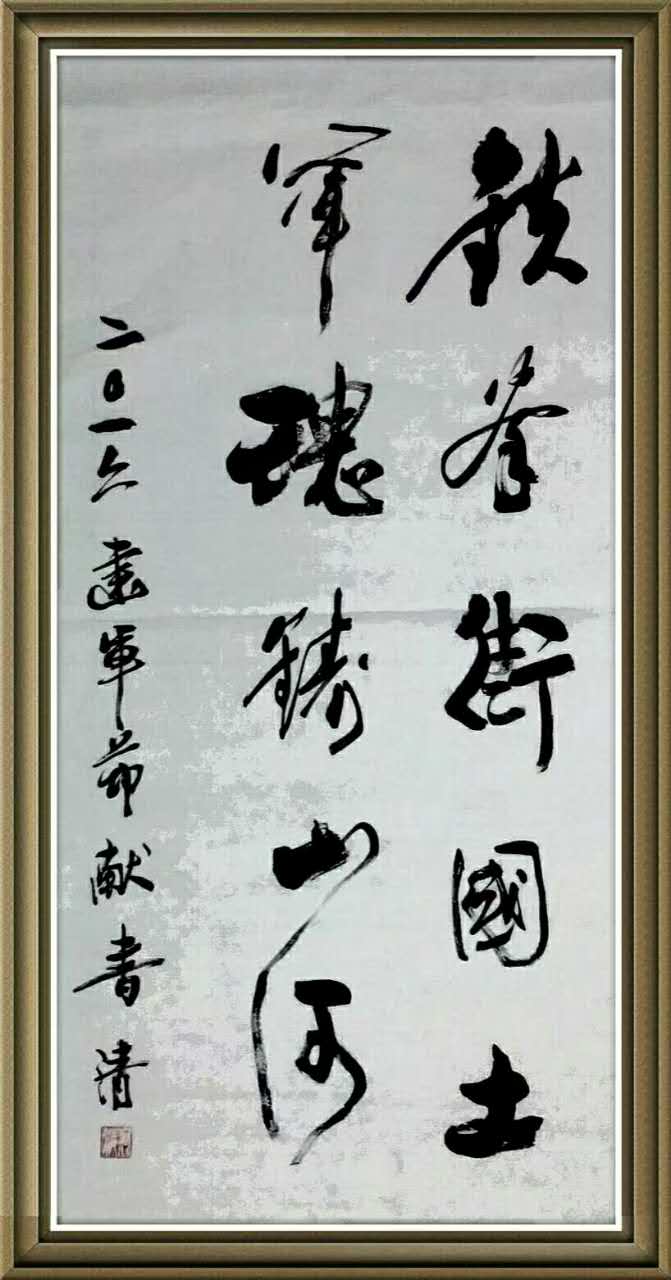 鉄拳衛國土
軍魂鑄山河
二〇一六建軍节献書清